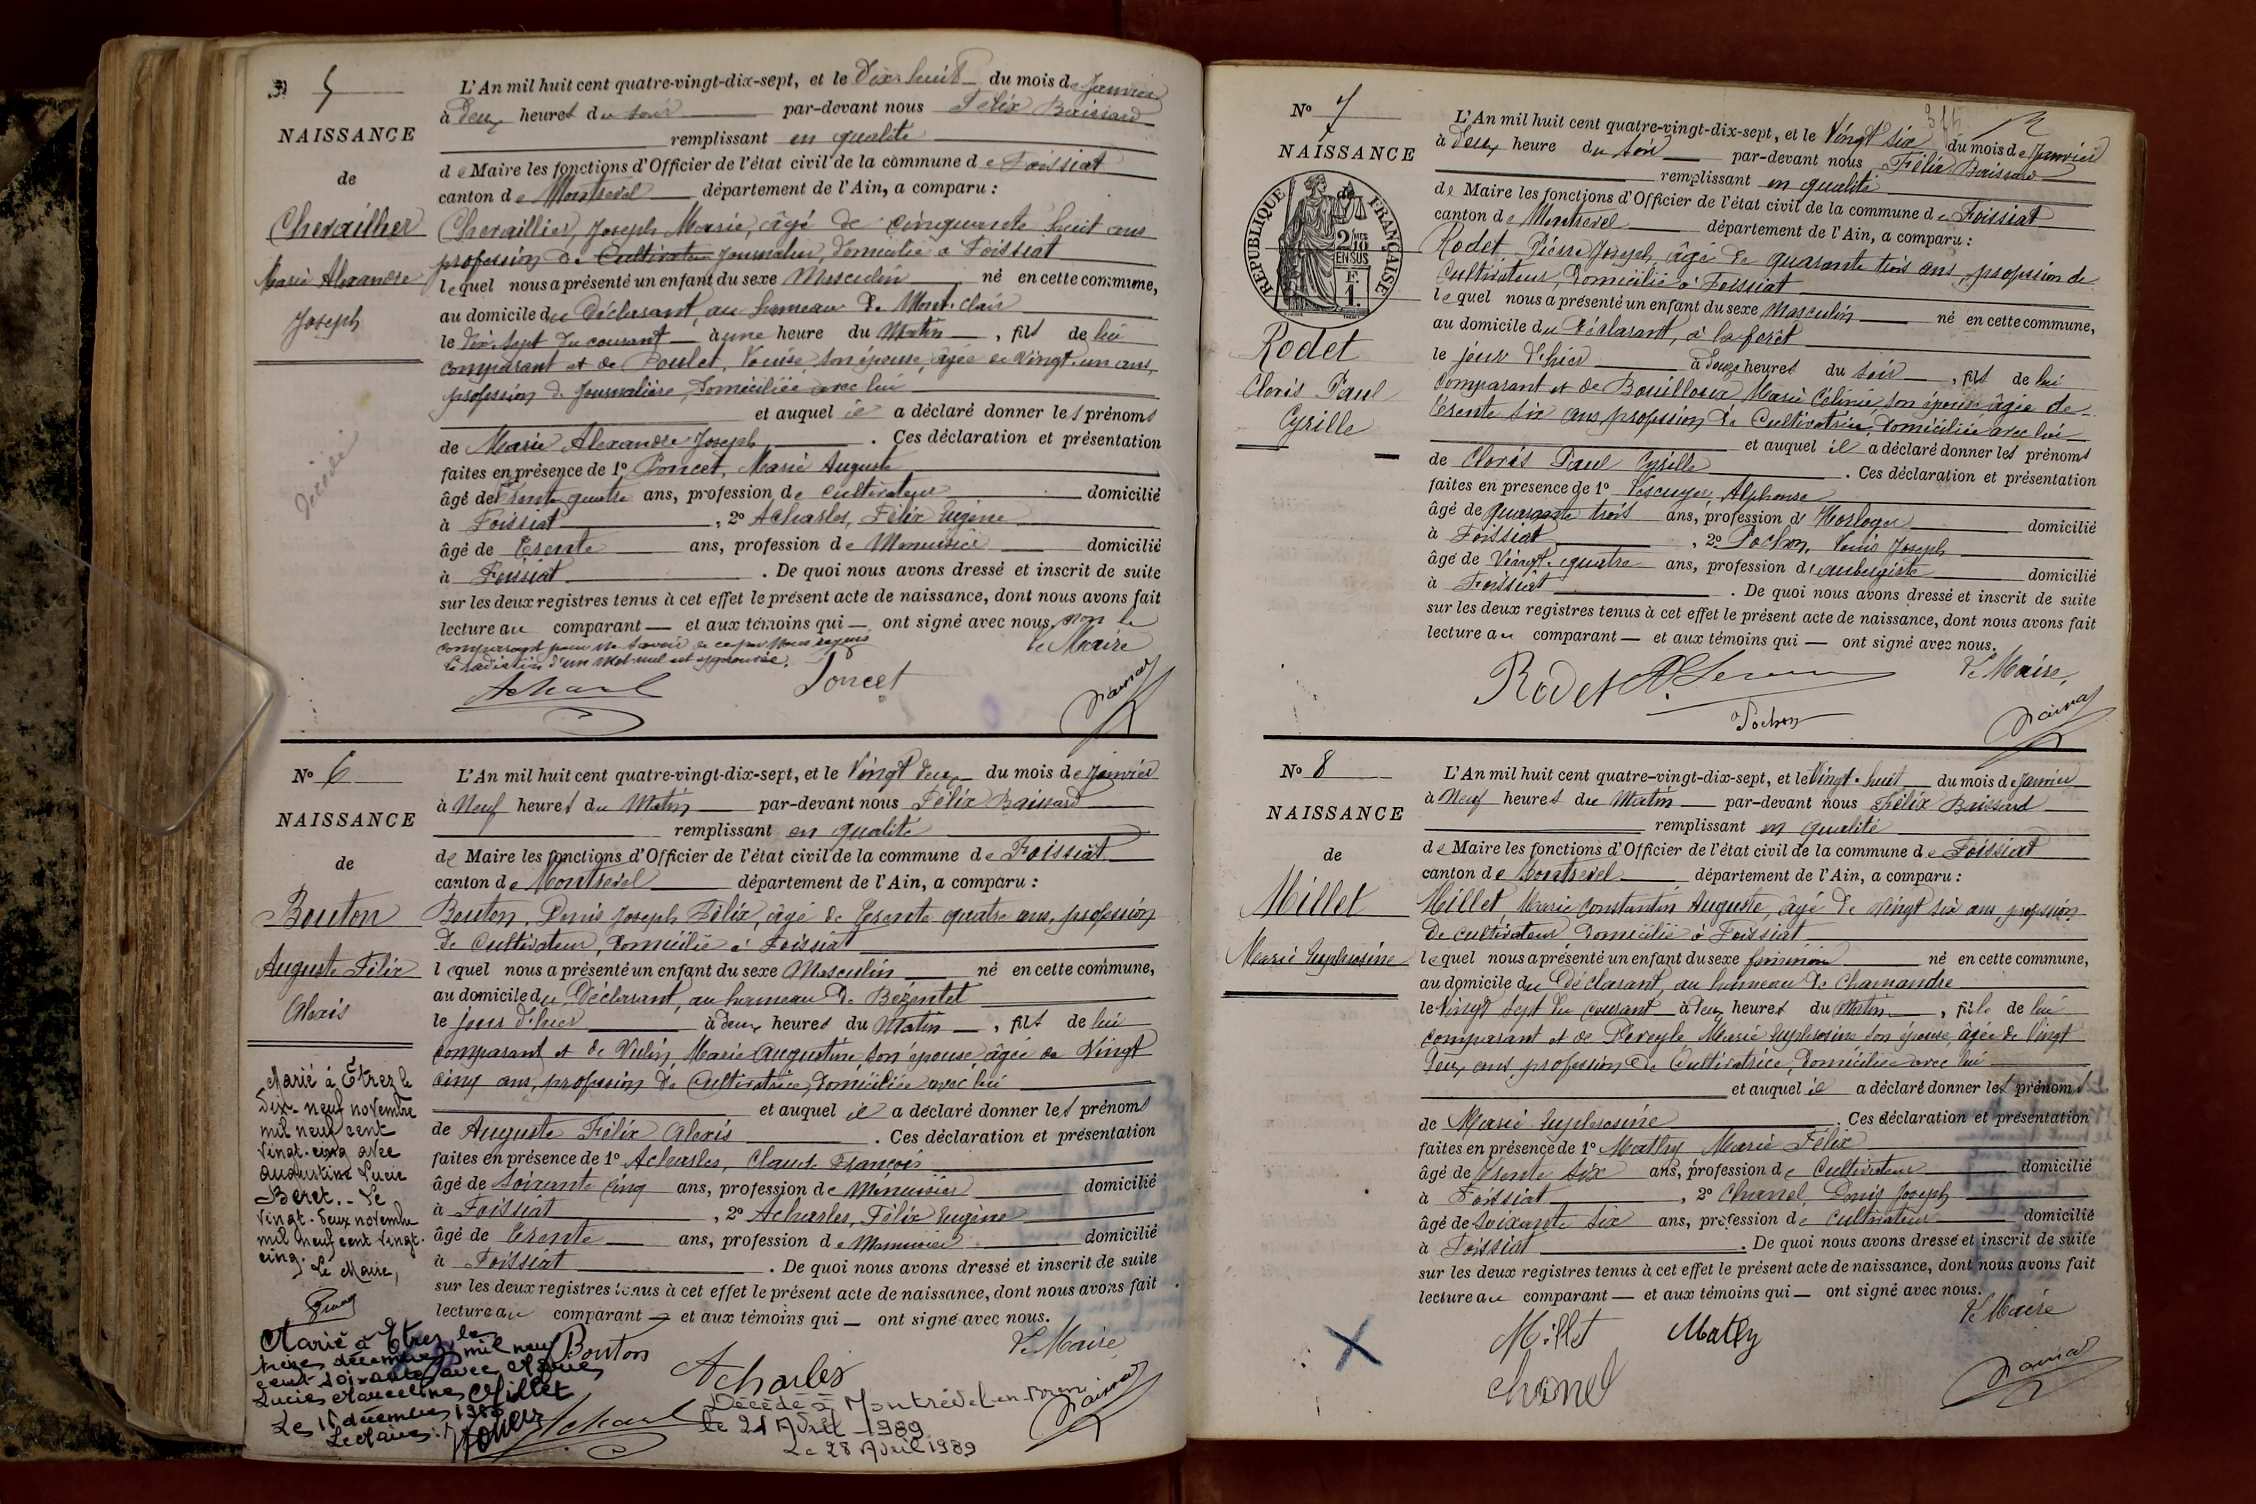 5
NAISSANCE
de
Chevaillier
Marie Alexandre
Joseph
Décédé
L'An mil huit cent quatre-vingt-dix-sept, et le Dix huit du mois de Janvier
à Deux heures du soir par-devant nous Félix Baissard
remplissant en qualité
de Maire les fonctions d'Officier de l'état civil de la commune de Foissiat
canton de Montrevel département de l'Ain, a comparu :
Chevaillier, Joseph Marie, âgé de cinquante huit ans
profession de Cultivateur Journalier, domicilié à Foissiat
lequel nous a présenté un enfant du sexe Masculin né en cette commune,
au domicile du Déclarant, au hameau de Mont-clair
le dix-sept du courant à une heure du Matin, fils de lui
comparant et de Poulet, Louise, son épouse, âgée de vingt-un ans,
profession de Journalière, domiciliée avec lui
et auquel il a déclaré donner les prénoms
de Marie Alexandre Joseph. Ces déclaration et présentation
faites en présence de 1° Poncet, Marie Auguste
âgé de trente quatre ans, profession de cultivateur domicilié
à Foissiat, 2° Acharles, Félix Eugène
âgé de trente ans, profession de Menuisier domicilié
à Foissiat. De quoi nous avons dressé et inscrit de suite
sur les deux registres tenus à cet effet le présent acte de naissance, dont nous avons fait
lecture au comparant — et aux témoins qui — ont signé avec nous, non le
comparant pour ne savoir de ce par nous requis
La radiation d'un mot nul est approuvée. Le Maire
Poncet
N° 6
NAISSANCE
de
Bouton
Auguste Félix
Alexis
Marié à Etrez le
dix-neuf novembre
mil neuf cent
vingt-cinq avec
Augustine Lucie
Beret. - Le
vingt-deux novembre
mil neuf cent vingt-
cinq.
Le Maire,
Marié à Etrez, le
treize décembre mil neuf
cent soixante avec Marie
Lucie Marcelline Millet
Le 15 décembre 1960
Le Maire :
L'An mil huit cent quatre-vingt-dix-sept, et le Vingt deux du mois de Janvier
à Neuf heures du Matin par-devant nous Félix Baissard
remplissant en qualité
de Maire les fonctions d'Officier de l'état civil de la commune de Foissiat
canton de Montrevel département de l'Ain, a comparu :
Bouton, Denis Joseph Félix, âgé de trente quatre ans, profession
de Cultivateur, domicilié à Foissiat
lequel nous a présenté un enfant du sexe Masculin né en cette commune,
au domicile du Déclarant, au hameau de Bézentet
le jour d'hier à deux heures du Matin, fils de lui
comparant et de Vulin, Marie Augustine son épouse âgée de Vingt
cinq ans, profession de Cultivatrice, domiciliée avec lui
et auquel il a déclaré donner les prénoms
de Auguste Félix Alexis. Ces déclaration et présentation
faites en présence de 1° Acharles, Claude François
âgé de soixante cinq ans, profession de Menuisier domicilié
à Foissiat, 2° Acharles, Félix Eugène
âgé de trente ans, profession de Menuisier domicilié
à Foissiat. De quoi nous avons dressé et inscrit de suite
sur les deux registres tenus à cet effet le présent acte de naissance, dont nous avons fait
lecture au comparant — et aux témoins qui — ont signé avec nous.
Bouton Acharles Le Maire
Décédé à Montrevel-en-Bresse
le 21 Avril 1989
Le 28 Avril 1989
N° 7
NAISSANCE
de
RÉPUBLIQUE FRANÇAISE
2/10 EN SUS
F. 1.
Rodet
Cloris Paul
Cyrille
L'An mil huit cent quatre-vingt-dix-sept, et le Vingt six du mois de Janvier
à deux heure du soir par-devant nous Félix Baissard
remplissant en qualité
de Maire les fonctions d'Officier de l'état civil de la commune de Foissiat
canton de Montrevel département de l'Ain, a comparu :
Rodet, Pierre Joseph, âgé de quarante trois ans, profession de
Cultivateur, domicilié à Foissiat
lequel nous a présenté un enfant du sexe Masculin né en cette commune,
au domicile du Déclarant, à la forêt
le jour d'hier à douze heures du soir, fils de lui
comparant et de Bouilloux Marie Célinie son épouse âgée de
trente six ans, profession de Cultivatrice, domiciliée avec lui
et auquel il a déclaré donner les prénoms
de Cloris Paul Cyrille. Ces déclaration et présentation
faites en présence de 1° Lescuyer, Alphonse
âgé de quarante trois ans, profession d'Horloger domicilié
à Foissiat, 2° Pochon, Louis Joseph
âgé de Vingt-quatre ans, profession d'aubergiste domicilié
à Foissiat. De quoi nous avons dressé et inscrit de suite
sur les deux registres tenus à cet effet le présent acte de naissance, dont nous avons fait
lecture au comparant — et aux témoins qui — ont signé avec nous.
Rodet Le Maire,
Pochon
N° 8
NAISSANCE
de
Millet
Marie Euphrosine
L'An mil huit cent quatre-vingt-dix-sept, et le Vingt-huit du mois de Janvier
à Neuf heures du Matin par-devant nous Félix Baissard
remplissant en qualité
de Maire les fonctions d'Officier de l'état civil de la commune de Foissiat
canton de Montrevel département de l'Ain, a comparu :
Millet, Marie Constantin Auguste, âgé de vingt six ans, profession
de cultivateur domicilié à Foissiat
lequel nous a présenté un enfant du sexe féminin né en cette commune,
au domicile du Déclarant, au hameau de Chamandre
le Vingt sept du courant à deux heures du Matin, fille de lui
comparant et de Marie Euphrosine son épouse, âgée de Vingt
deux ans, profession de Cultivatrice, domiciliée avec lui
et auquel il a déclaré donner les prénoms
de Marie Euphrosine. Ces déclaration et présentation
faites en présence de 1° Mathy Marie Félix
âgé de trente six ans, profession de Cultivateur domicilié
à Foissiat, 2° Chanel Denis Joseph
âgé de soixante six ans, profession de cultivateur domicilié
à Foissiat. De quoi nous avons dressé et inscrit de suite
sur les deux registres tenus à cet effet le présent acte de naissance, dont nous avons fait
lecture au comparant — et aux témoins qui — ont signé avec nous.
Millet Mathy Le Maire
Chanel